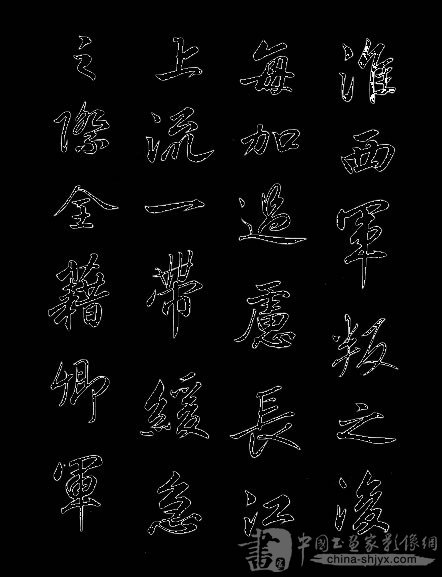 淮西軍叛之後
每加過慮長江
上流一帶緩急
之際全藉卿軍
中国书画家影像網
www.china-shjyx.com